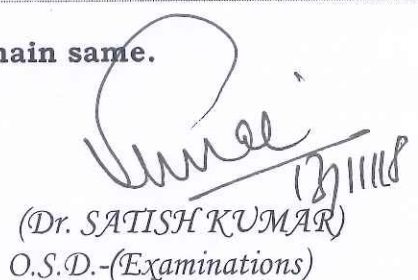 main same.
13/11/18
(Dr. SATISH KUMAR)
O.S.D.-(Examinations)